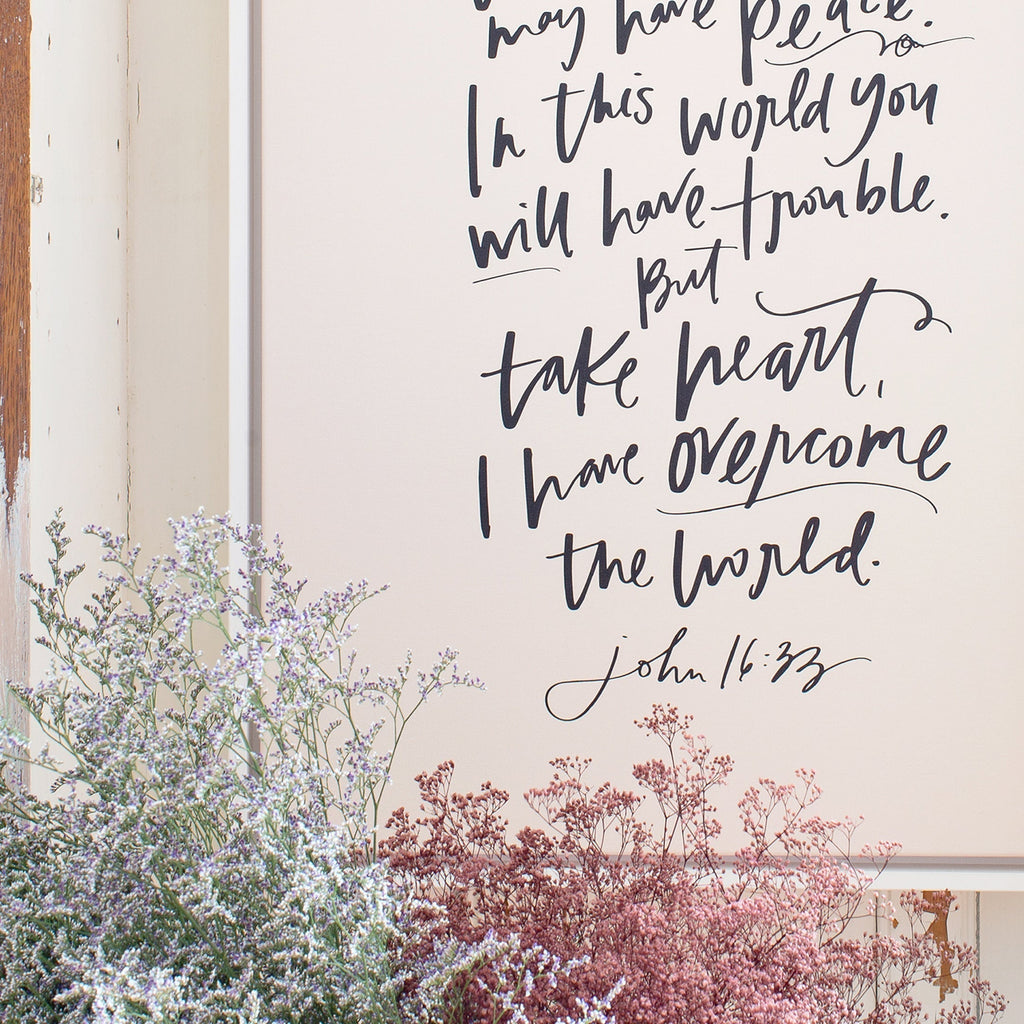 may have peace.
In this world you
will have trouble.
But
take heart,
I have overcome
the world.
john 16:33